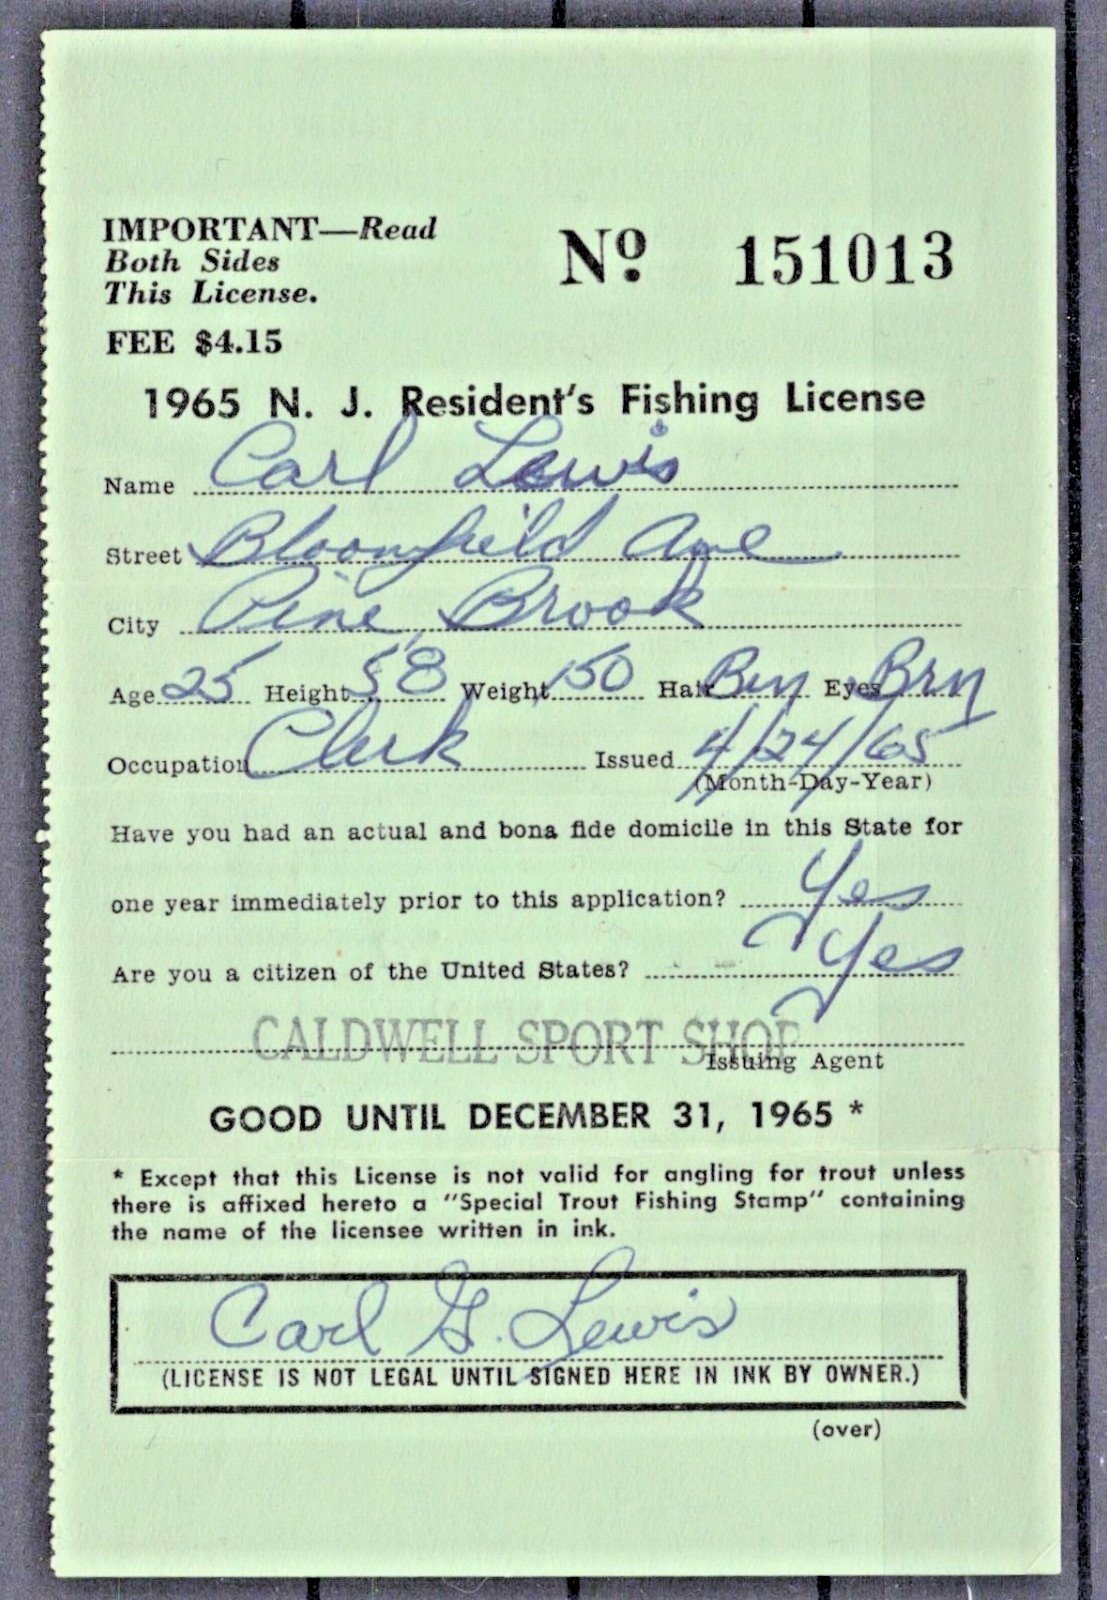 IMPORTANT—Read
Both Sides
This License.
No. 151013
FEE $4.15
1965 N. J. Resident's Fishing License
Name Carl Lewis
Street Bloomfield Ave
City Pine Brook
Age 25 Height 5'8 Weight 150 Hair Brn Eyes Brn
Occupation Clerk Issued 4/24/65
(Month-Day-Year)
Have you had an actual and bona fide domicile in this State for
one year immediately prior to this application? Yes
Are you a citizen of the United States? Yes
CALDWELL SPORT SHOP
Issuing Agent
GOOD UNTIL DECEMBER 31, 1965 *
* Except that this License is not valid for angling for trout unless
there is affixed hereto a "Special Trout Fishing Stamp" containing
the name of the licensee written in ink.
Carl G. Lewis
(LICENSE IS NOT LEGAL UNTIL SIGNED HERE IN INK BY OWNER.)
(over)